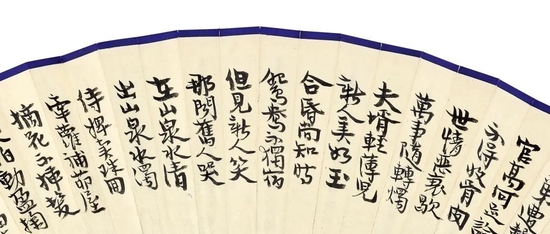 遭
官高何足論
不得收骨肉
世情惡衰歇
萬事隨轉燭
夫壻輕薄兒
新人美如玉
合昏尚知時
鴛鴦不獨宿
但見新人笑
那聞舊人哭
在山泉水清
出山泉水濁
侍婢賣珠回
牽蘿補茅屋
摘花不插髮
柏動盈掬